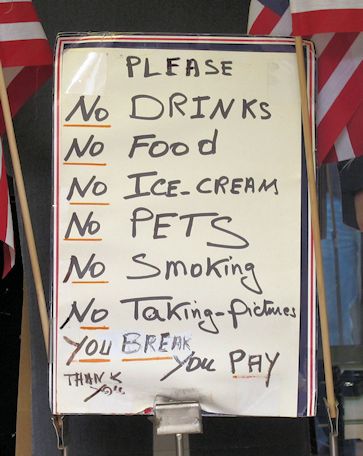 PLEASE
No DRINKS
No Food
No ICE-CREAM
No PETS
No Smoking
No Taking-pictures
YOU BREAK
You PAY
THANK
You